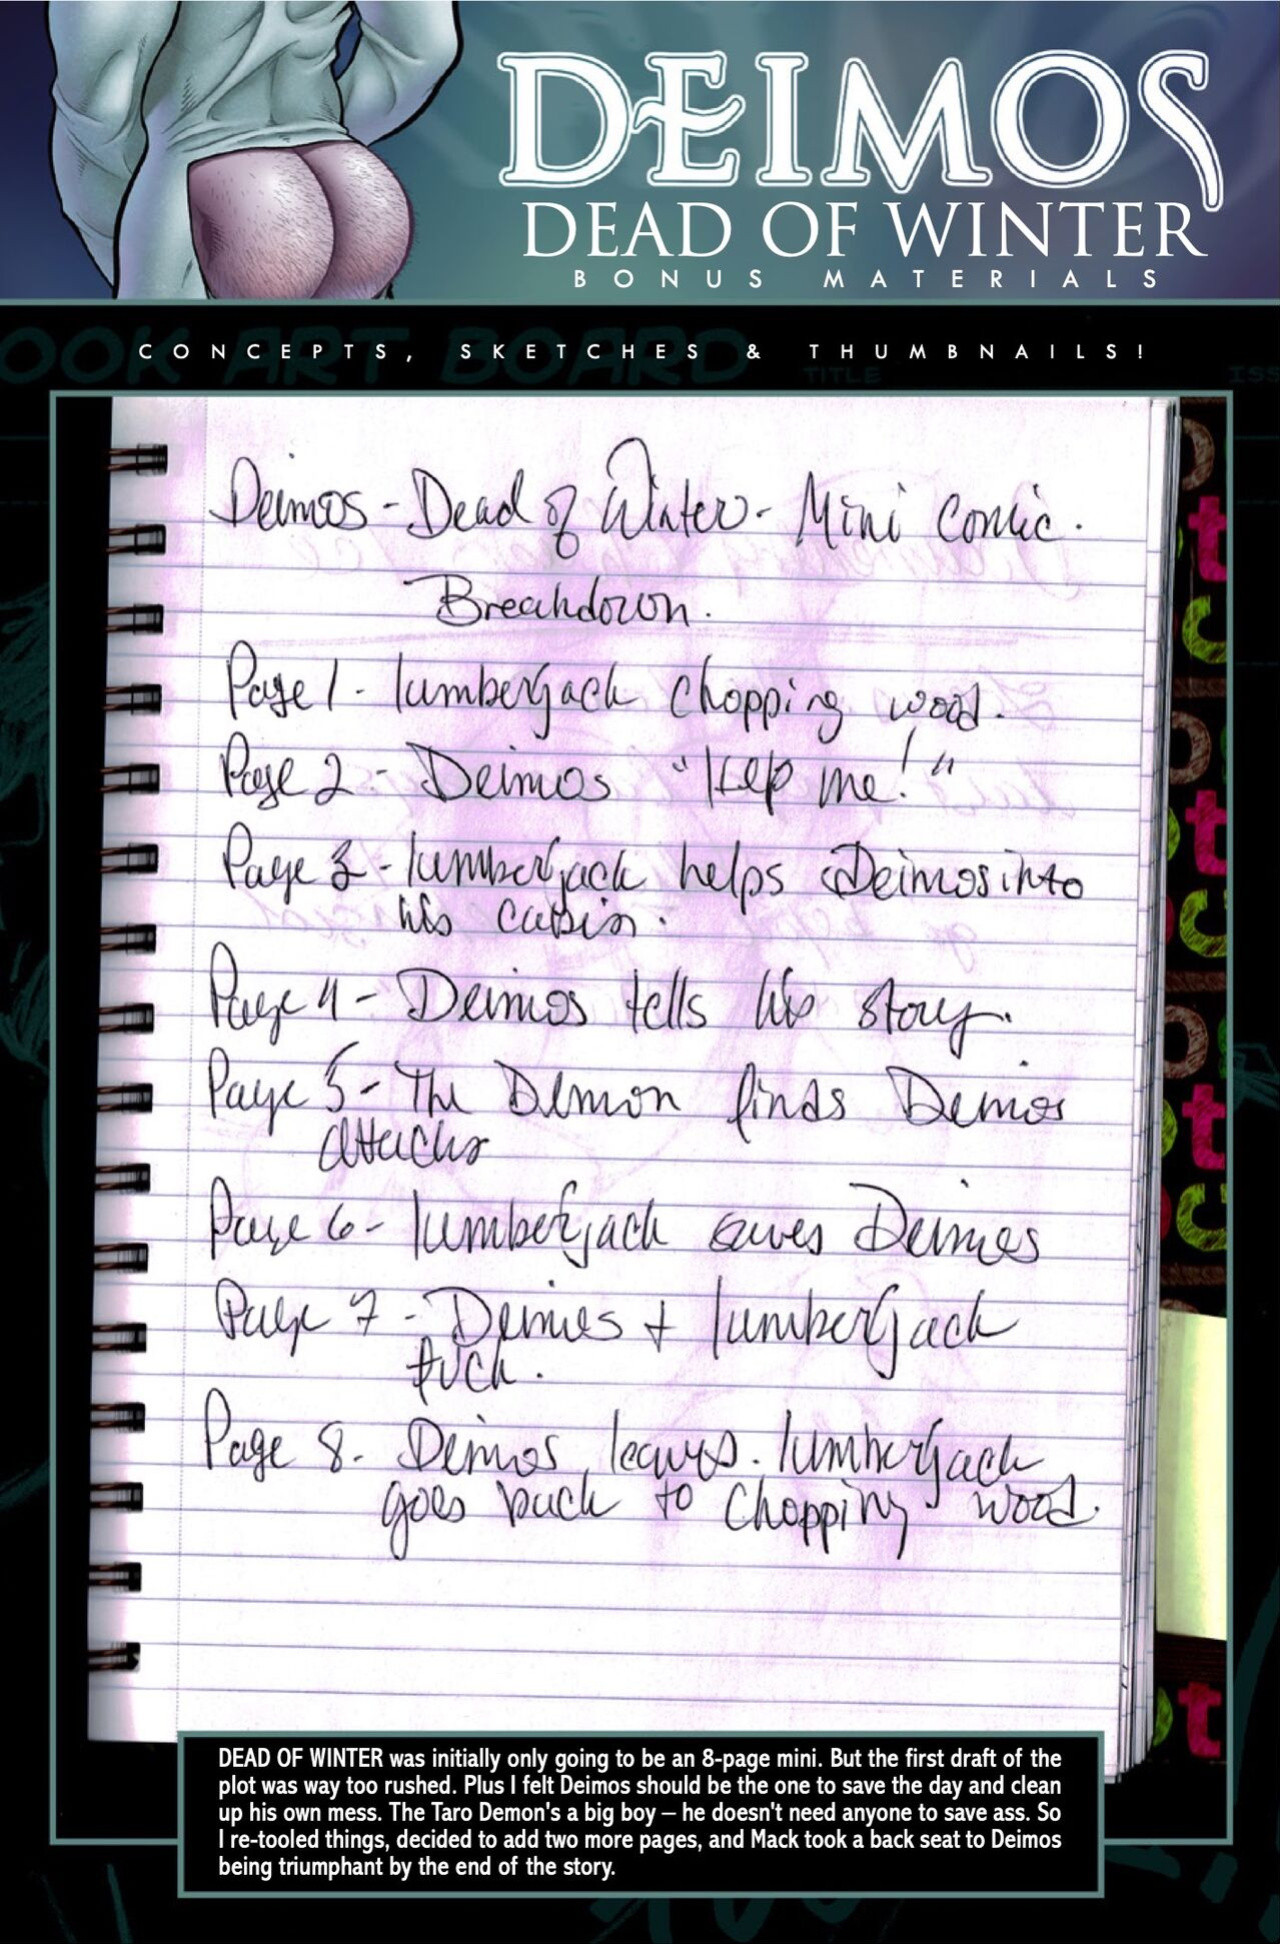 DEIMOS
DEAD OF WINTER
BONUS MATERIALS
OOK ART BOARD
TITLE
ISS
CONCEPTS, SKETCHES & THUMBNAILS!
Deimos - Dead of Winter - Mini Comic.
Breakdown.
Page 1 - lumberjack Chopping wood.
Page 2 - Deimos "Help me!"
Page 3 - lumberjack helps Deimos into
his cabin.
Page 4 - Deimos tells his story.
Page 5 - The Demon finds Deimos
attacks
Page 6 - lumberjack saves Deimos
Page 7 - Deimos + lumberjack
fuck.
Page 8 - Deimos leaves. lumberjack
goes back to Chopping wood.
DEAD OF WINTER was initially only going to be an 8-page mini. But the first draft of the
plot was way too rushed. Plus I felt Deimos should be the one to save the day and clean
up his own mess. The Taro Demon's a big boy – he doesn't need anyone to save ass. So
I re-tooled things, decided to add two more pages, and Mack took a back seat to Deimos
being triumphant by the end of the story.